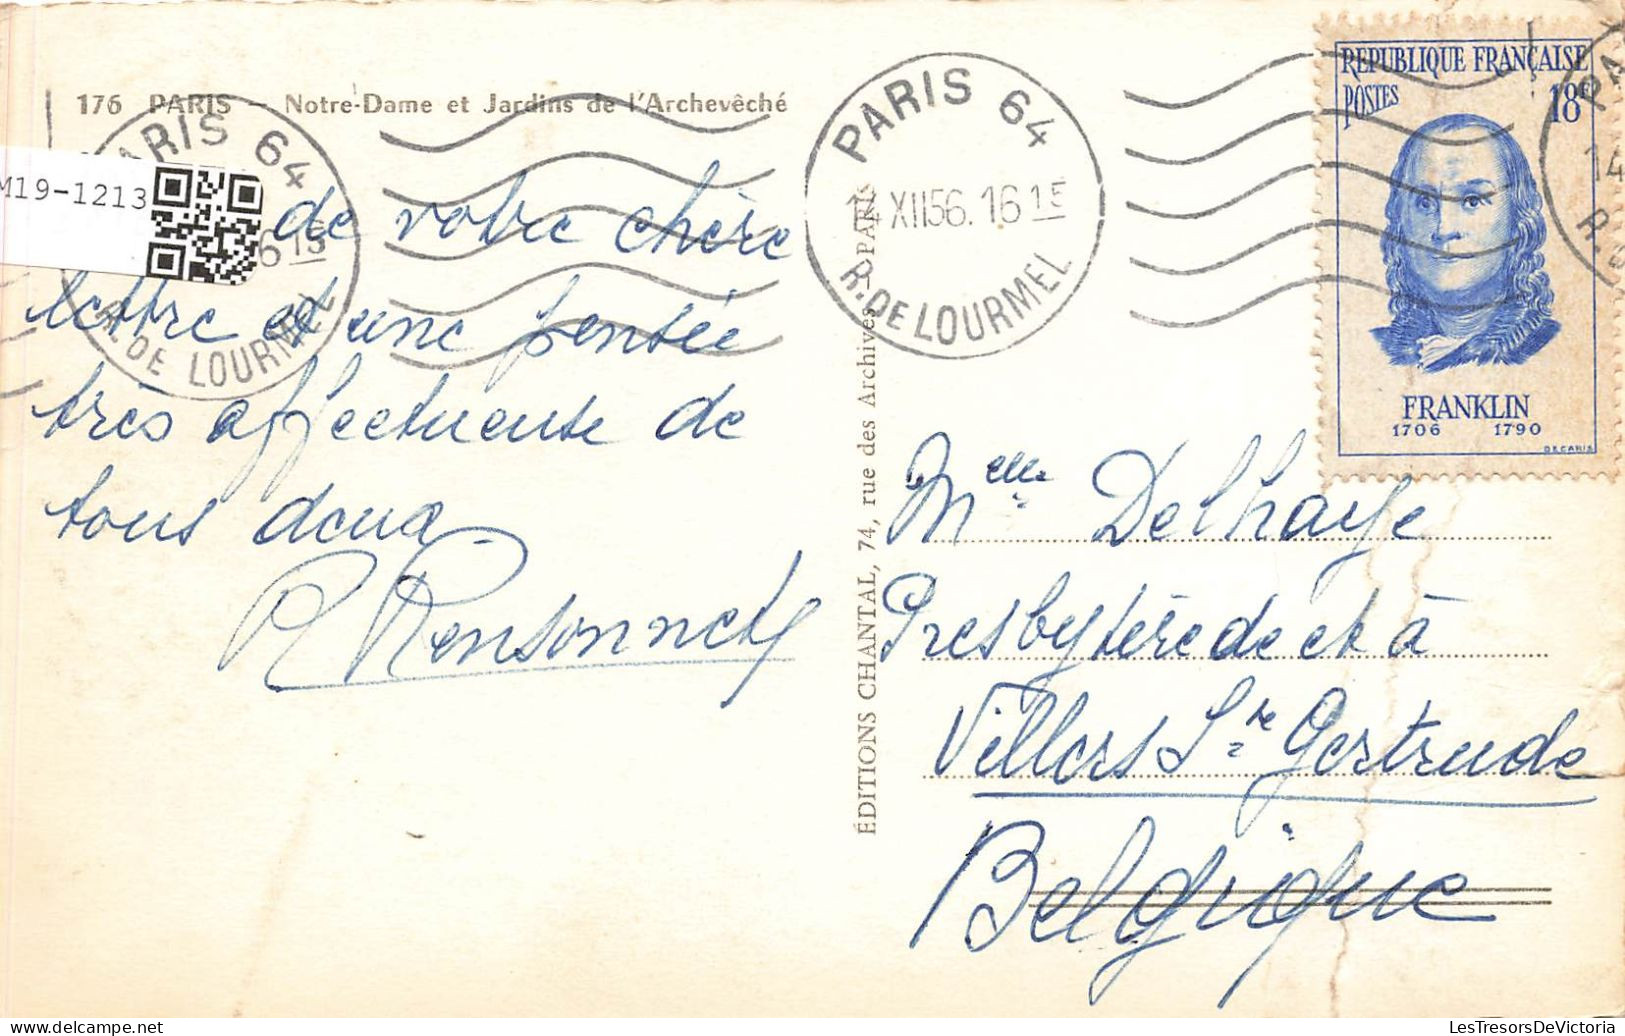 176 PARIS — Notre-Dame et Jardins de l'Archevêché
M19-1213
de votre chère
lettre et une pensée
très affectueuse de
tous deux.
R Rensonnet
PARIS 64
R. DE LOURMEL
PARIS 64
XII56. 16 15
R. DE LOURMEL
ÉDITIONS CHANTAL, 74, rue des Archives — PARIS
REPUBLIQUE FRANÇAISE
POSTES 18F
FRANKLIN
1706 1790
DECARIS
Melle Delhaye
Presbytère de et à
Villers Ste Gertrude
Belgique
LesTresorsDeVictoria.com